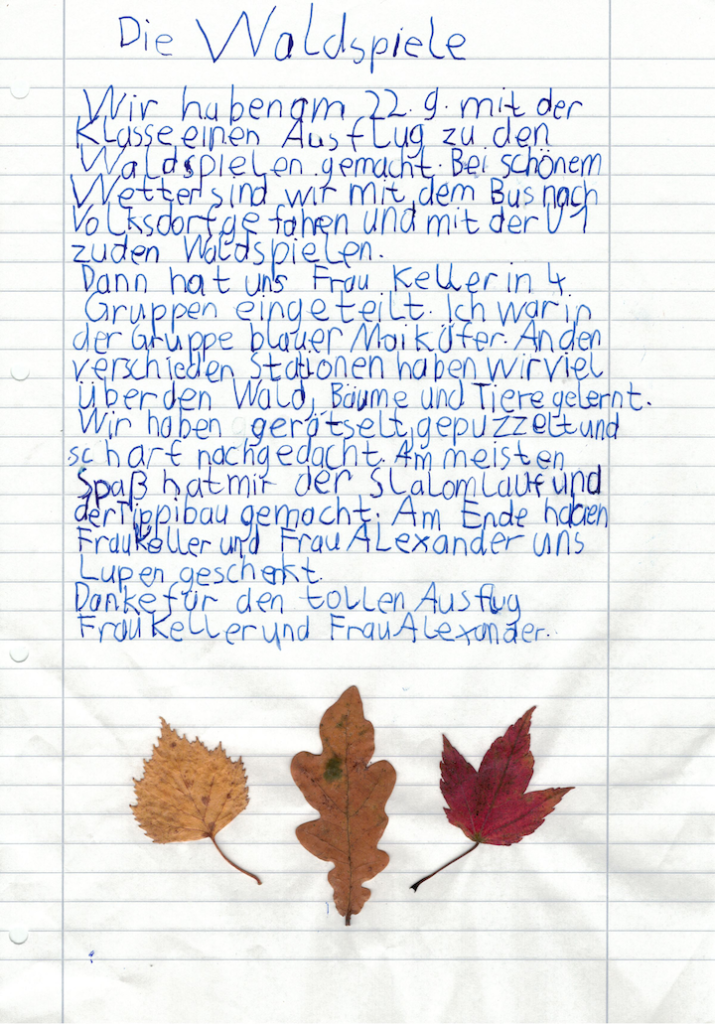 Die Waldspiele
Wir haben am 22.9. mit der
Klasse einen Ausflug zu den
Waldspielen gemacht. Bei schönem
Wetter sind wir mit dem Bus nach
Volksdorf gefahen und mit der U1
zu den Waldspielen.
Dann hat uns Frau Keller in 4
Gruppen eingeteilt. Ich war in
der Gruppe blauer Maikäfer. An den
verschieden Stationen haben wir viel
über den Wald, Bäume und Tiere gelernt.
Wir haben gerätselt, gepuzzelt und
scharf nachgedacht. Am meisten
Spaß hat mir der Slalomlauf und
der Tippibau gemacht. Am Ende haben
Frau Keller und Frau Alexander uns
Lupen geschenkt.
Danke für den tollen Ausflug
Frau Keller und Frau Alexander.